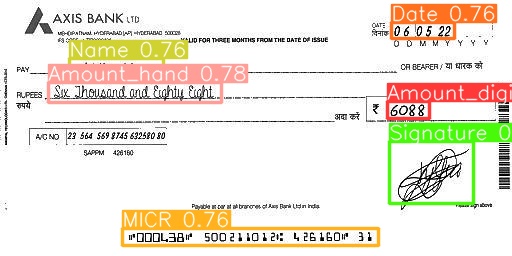 AXIS BANK LTD
MEHDIPATNAM, HYDERABAD [AP] HYDERABAD 500028
VALID FOR THREE MONTHS FROM THE DATE OF ISSUE
DATE दिनांक 06 05 22
D D M M Y Y
Date 0.76
Name 0.76
PAY OR BEARER / या धारक को
Amount_hand 0.78
RUPEES रुपये Six Thousand and Eighty Eight
Amount_digi
अदा करें ₹ 6088
Signature 0
A/C NO 23 564 569 8745 632580 80
SAPPM 426160
Payable at par at all branches of Axis Bank Ltd in India.
Please sign above
MICR 0.76
⑈000438⑈ 500211012⑆ 426160⑈ 31